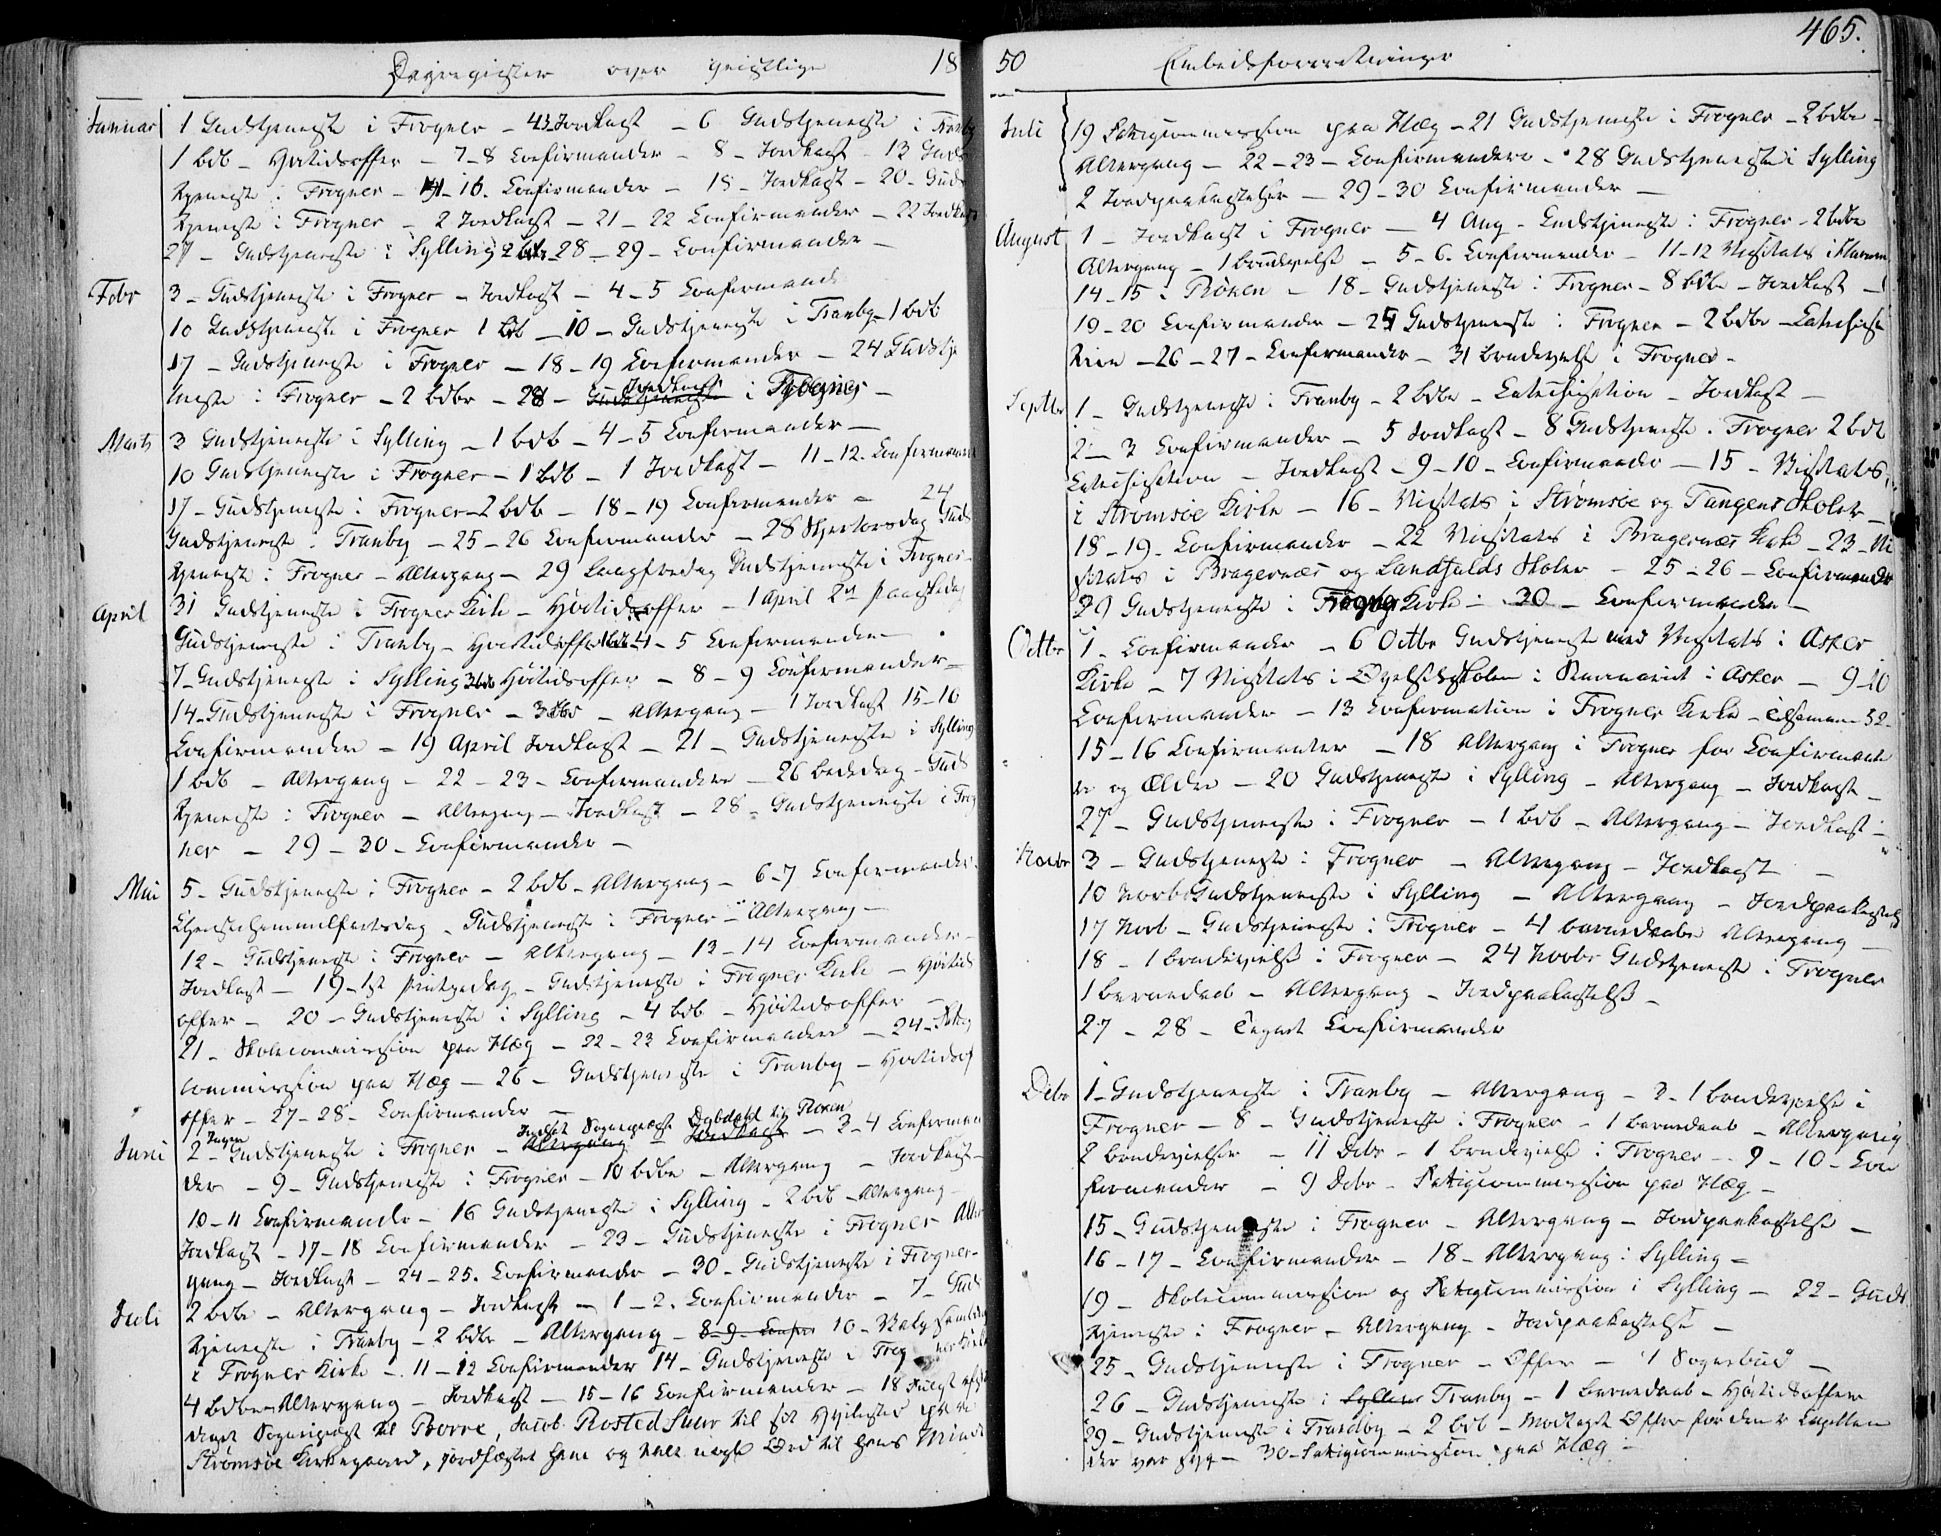 Dagregister over geistlige 18
Januar 1 Gudstjeneste i Frogner – Jordkast – 6 Gudstjeneste i Tranby
1 bdb – Høitidsoffer – 7–8 Confirmander – 8 – Jordkast – 13 Guds
tjeneste i Frogner – 16 – Confirmander – 18 – Jordkast – 20 – Guds
tjeneste i Frogner – 2 Jordkast – 21 – 22 Confirmander – 22 Jordkast
27 – Gudstjeneste i Sylling 2 bdb – 28 – 29 – Confirmander –
Febr 3 – Gudstjeneste i Frogner – Jordkast – 4–5 Confirmande
10 Gudstjeneste i Frogner 1 bdb – 10 – Gudstjeneste i Tranby – 1 bdb
17 – Gudstjeneste i Frogner – 18 – 19 Confirmander – 24 Gudstje
neste i Frogner – 2 bdbe – 28 – Jordkast i
Marts 3 Gudstjeneste i Sylling – 1 bdb – 4–5 Confirmander –
10 Gudstjeneste i Frogner – 1 bdb – 1 Jordkast – 11–12. Confirmander
17 – Gudstjeneste i Frogner – 2 bdb – 18 – 19 Confirmander – 24
Gudstjeneste i Tranby – 25 – 26 Confirmander – 28 Skjertorsdag Guds
tjeneste i Frogner – Altergang – 29 Langfredag Gudstjeneste i Frogner –
April 31 Gudstjeneste i Frogner Kirke – Høitidsoffer – 1 April 2n Paaskedag
Gudstjeneste i Tranby – Høitidsoffer 4 – 5 Confirmander
7 – Gudstjeneste i Sylling 3 bdb Høitidsoffer – 8 – 9 Confirmander –
14 – Gudstjeneste i Frogner – Altergang – 1 Jordkast 15–16
Confirmander – 19 April Jordkast – 21 – Gudstjeneste i Sylling
1 bdb – Altergang – 22 – 23 – Confirmandere – 26 Bededag – Guds
tjeneste i Frogner – Altergang – Jordkast – 28 – Gudstjeneste i Frog
ner – 29 – 30 – Confirmander –
Mai 5 – Gudstjeneste i Frogner – 2 bdb – Altergang – 6–7 Confirmander
Christi Himmelfartsdag – Gudstjeneste i Frogner – Altergang –
12 – Gudstjeneste i Frogner – Altergang – 13 – 14 Confirmander –
Jordkast – 19 – 1st Pintsedag – Gudstjeneste i Frogner Kirke – Høitids
offer – 20 – Gudstjeneste i Sylling – 4 bdb – Høitidsoffer –
21 – Skolecommission paa Hæg – 22 – 23 Confirmander – 24 –
commission paa Hæg – 26 – Gudstjeneste i Tranby – Høitids
offer – 27 – 28 – Confirmander –
Indsat Sogneprest Dybdahl til Røken
Juni 2 – Ingen Gudstjeneste i Frogner – Altergang Jordkast – 3–4 Confirman
der – 9 – Gudstjeneste i Frogner – 10 bdbe – Altergang – Jordkast –
10 – 11 Confirmander – 16 Gudstjeneste i Sylling – 2 bdb – Altergang –
Jordkast – 17 – 18 Confirmander – 23 – Gudstjeneste i Frogner Alter
gang – Jordkast – 24 – 25. Confirmander – 30 – Gudstjeneste i Frogner –
Juli 2 bdbe – Altergang – Jordkast – 1 – 2. Confirmander – 7 – Guds
tjeneste i Tranby – 2 bdbe – Altergang – 8–9 – Confir 10 – Valgforsamling
i Frogner Kirke – 11 – 12 Confirmander 14 – Gudstjeneste i Frogner Kirke
4 bdbe – Altergang – Jordkast – 15 – 16 Confirmander – 18 Fulgt
Sogneprest til Borre, Jacob Rosted Suur til sit Hvilested paa
Strømsøe Kirkegaard, jordfæstet ham og talt nogle Ord til hans Minde
50 Embedsforretninger 465.
Juli 19 Fattigcommission paa Hæg – 21 Gudstjeneste i Frogner – 2 bdbe –
Altergang – 22 – 23 – Confirmandere – 28 Gudstjeneste i Sylling
2 Jordpaakastelser – 29 – 30 Confirmander –
August 1 – Jordkast i Frogner – 4 Aug – Gudstjeneste i Frogner – 2 bdbe
Altergang – 1 Brudevielse – 5 – 6. Confirmander – 11 – 12 Visitats i
14 – 15 – Røken – 18 – Gudstjeneste i Frogner – 8 bdbe – Jordkast –
19 – 20 Confirmander – 25 Gudstjeneste i Frogner – 2 bdbe – Catechisa
tion – 26 – 27 – Confirmander – 31 Brudevielse i Frogner –
Septbr 1 – Gudstjeneste i Tranby – 2 bdbe – Catechisation – Jordkast –
2 – 3 Confirmander – 5 Jordkast – 8 Gudstjeneste i Frogner 2 bdb
Catechisation – Jordkast – 9 – 10 – Confirmander – 15 – Visitats
i Strømsöe Kirke – 16 – Visitats i Strømsöe og Tangens Skoler –
18 – 19 – Confirmander – 22 Visitats i Bragernæs Kirke – 23 – Vi
sitats i Bragernæs og Landfalds Skoler – 25 – 26 – Confirmander
29 Gudstjeneste i Frogner Kirke – 30 – Confirmander –
Octbr 1 – Confirmander – 6 Octbr Gudstjeneste med Visitats i Asker
Kirke – 7 Visitats i Øvelsesskolen i i Asker – 9–10
Confirmander – 13 Confirmation i Frogner Kirke – tilsammen 32 –
15 – 16 Confirmander – 18 Altergang i Frogner for Confirmande
re og Ældre – 20 Gudstjeneste i Sylling – Altergang – Jordkast –
27 – Gudstjeneste i Frogner – 1 bdb – Altergang – Jordkast –
Novbr 3 – Gudstjeneste i Frogner – Altergang – Jordkast –
10 Novbr Gudstjeneste i Sylling – Altergang – Jordpaakastelse
17 Novb – Gudstjeneste i Frogner – 4 Barnedaabe Altergang –
18 – 1 Brudevielse i Frogner – 24 Novbr Gudstjeneste i Frogner
1 Barnedaab – Altergang – Jordpaakastelse –
27 – 28 – Tegnet Confirmander
Debr 1 – Gudstjeneste i Tranby – Altergang – 3 – 1 Brudevielse i
Frogner – 8 – Gudstjeneste i Frogner – 1 Barnedaab – Altergang
2 Brudevielser – 11 Debr – 1 Brudevielse i Frogner – 9 – 10 – Con
firmander – 9 Debr – Fattigcommission paa Hæg –
15 – Gudstjeneste i Frogner – Altergang – Jordpaakastelse –
16 – 17 – Confirmander – 18 – Altergang i Sylling –
19 – Skolecommission og Fattigcommission i Sylling – 22 – Guds
tjeneste i Frogner – Altergang – Jordpaakastelse –
25 – Gudstjeneste i Frogner – Offer – 1 Sognebud –
26 – Gudstjeneste i Tranby – 1 Barnedaab – Høitidsoffer
29 – Gudstjeneste i Tranby – 2 bdb – Modtaget Offer for den Capellan
der var syg – 30 – Fattigcommission paa Hæg –